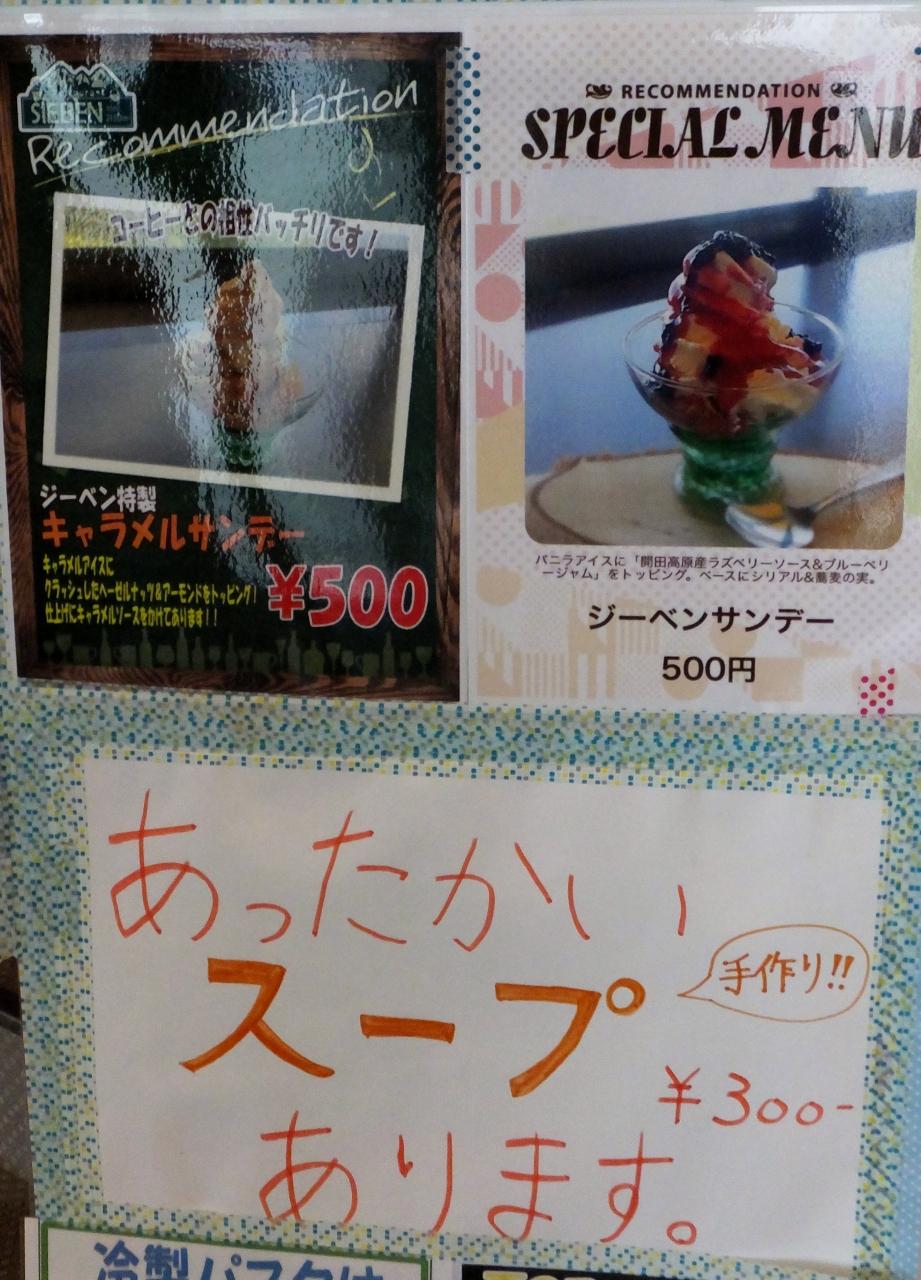 SIEBEN
Recommendation
コーヒーとの相性バッチリです！
ジーベン特製
キャラメルサンデー
キャラメルアイスに
クラッシュしたヘーゼルナッツ&アーモンドをトッピング！
仕上げにキャラメルソースをかけてあります！！
¥500
RECOMMENDATION
SPECIAL MENU
バニラアイスに「開田高原産ラズベリーソース&ブルーベリ
ージャム」をトッピング。ベースにシリアル&蕎麦の実。
ジーベンサンデー
500円
あったかい
スープ
手作り!!
¥300-
あります。
冷製パスタは